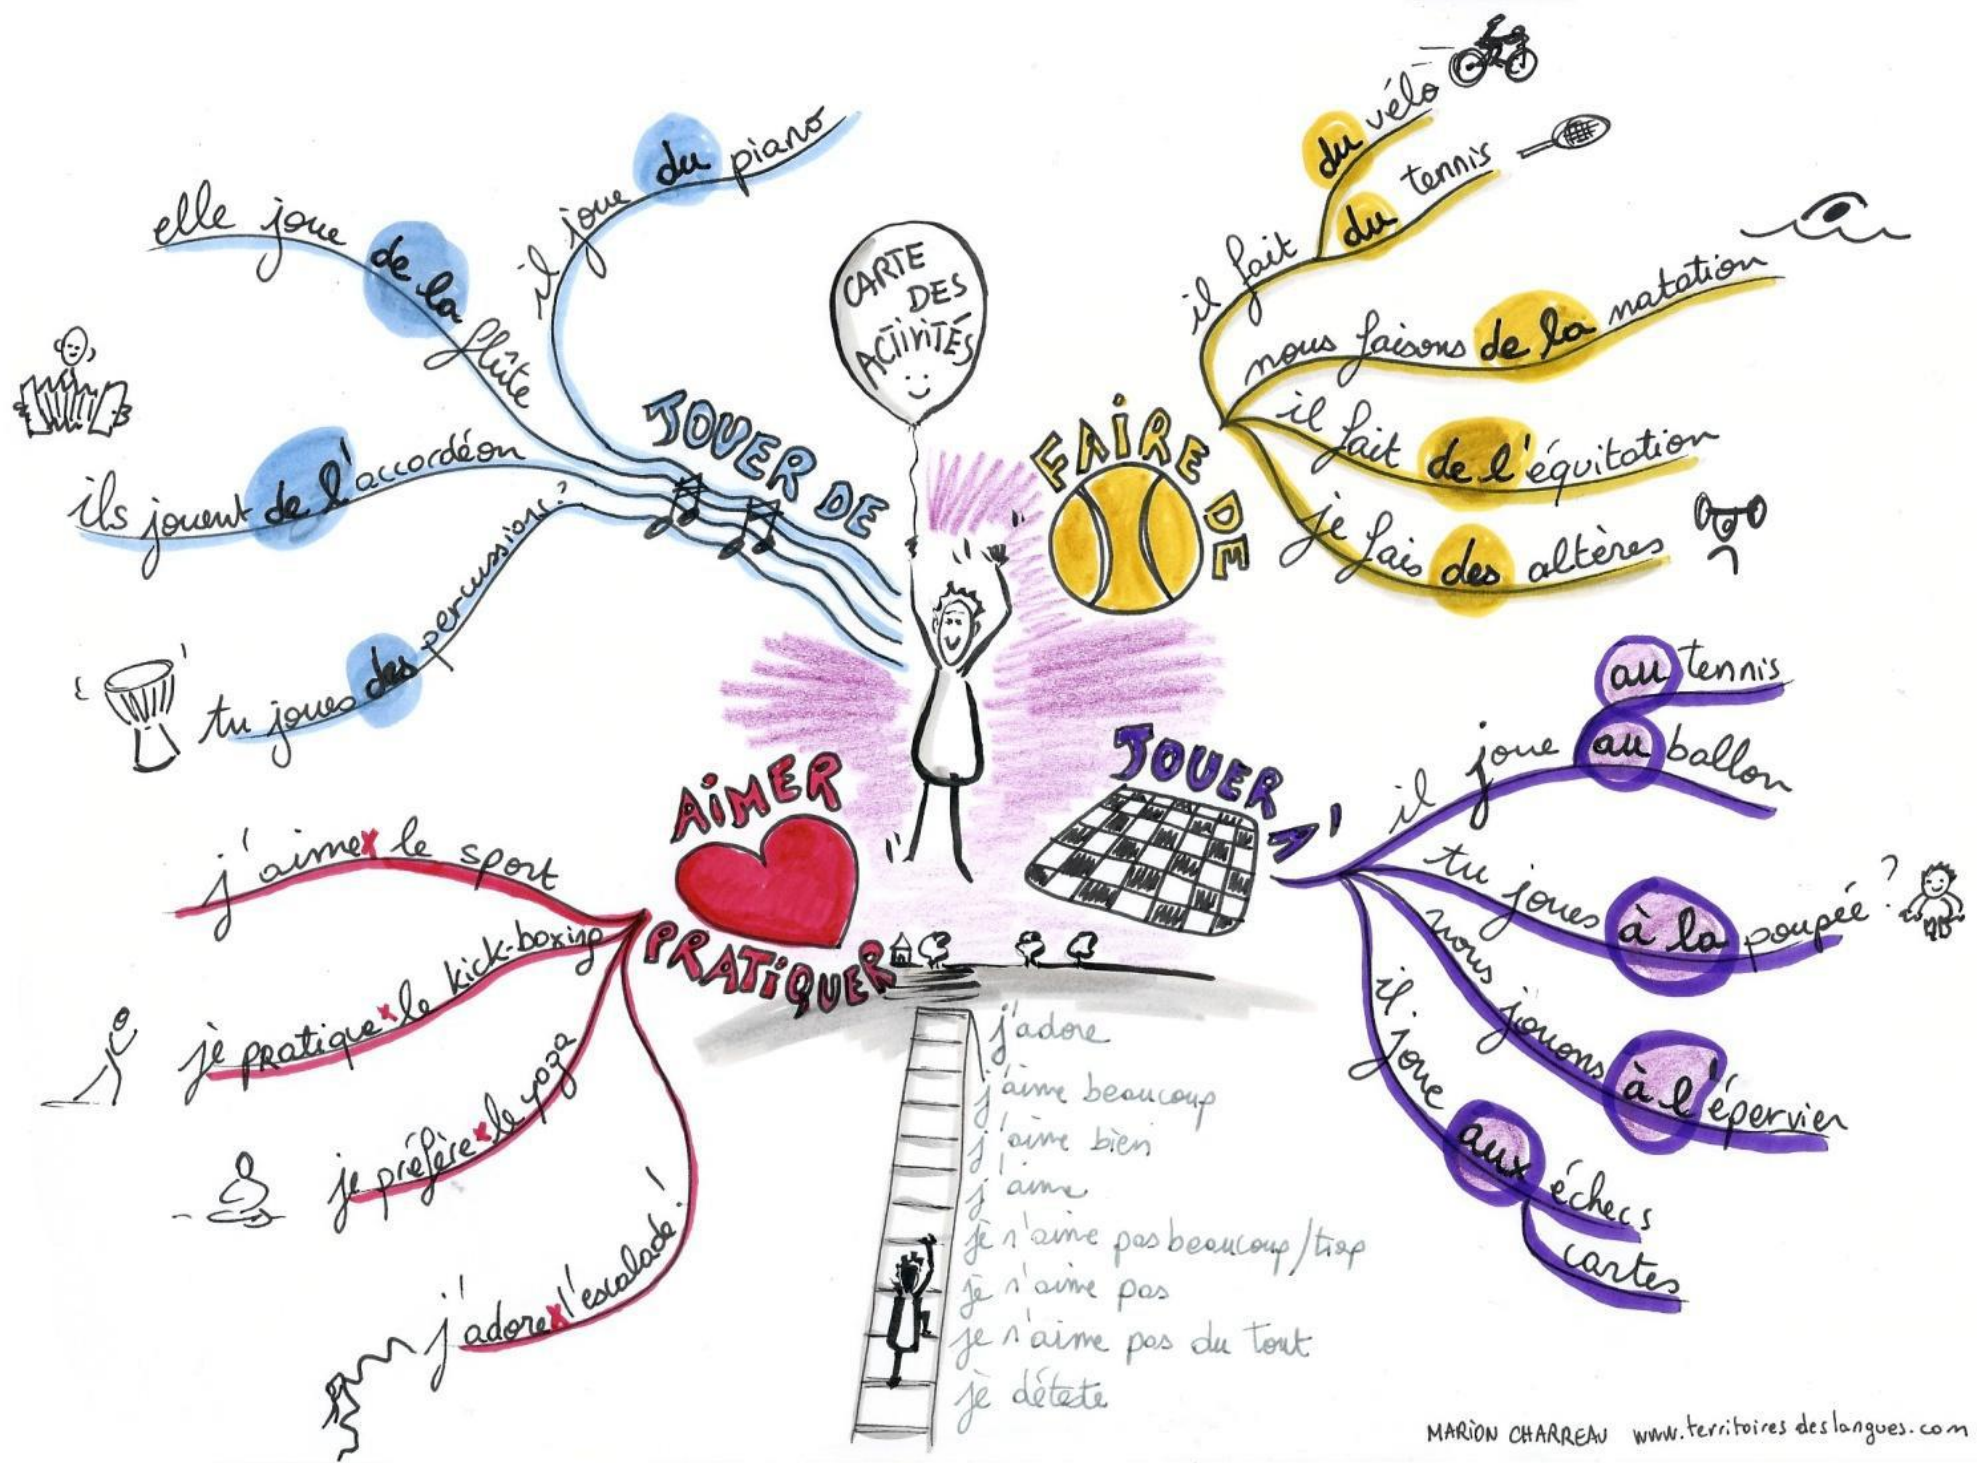 CARTE
DES
ACTIVITÉS
JOUER DE
il joue du piano
elle joue de la flûte
ils jouent de l'accordéon
tu joues des percussions?
FAIRE DE
il fait
du vélo
du tennis
nous faisons de la natation
il fait de l'équitation
je fais des altères
JOUER À
il joue
au tennis
au ballon
tu joues à la poupée?
nous jouons à l'épervier
il joue aux échecs
cartes
AIMER
PRATIQUER
j'aime x le sport
je pratique x le kick-boxing
je préfère x le yoga
j'adore x l'escalade!
j'adore
j'aime beaucoup
j'aime bien
j'aime
je n'aime pas beaucoup/trop
je n'aime pas
je n'aime pas du tout
je déteste
MARION CHARREAU www.territoiresdeslangues.com